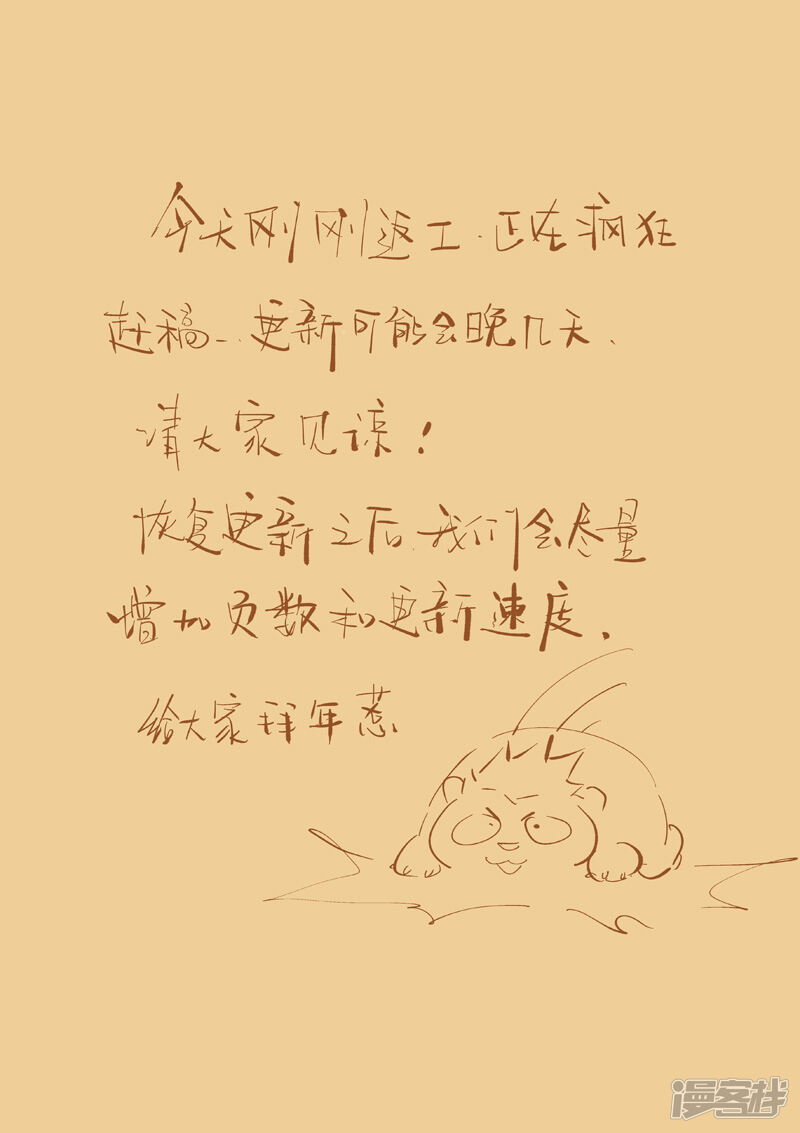 今天刚刚返工.正在疯狂
赶稿...更新可能会晚几天、
请大家见谅！
恢复更新之后.我们会尽量
增加页数和更新速度、
给大家拜年惹.
漫客栈